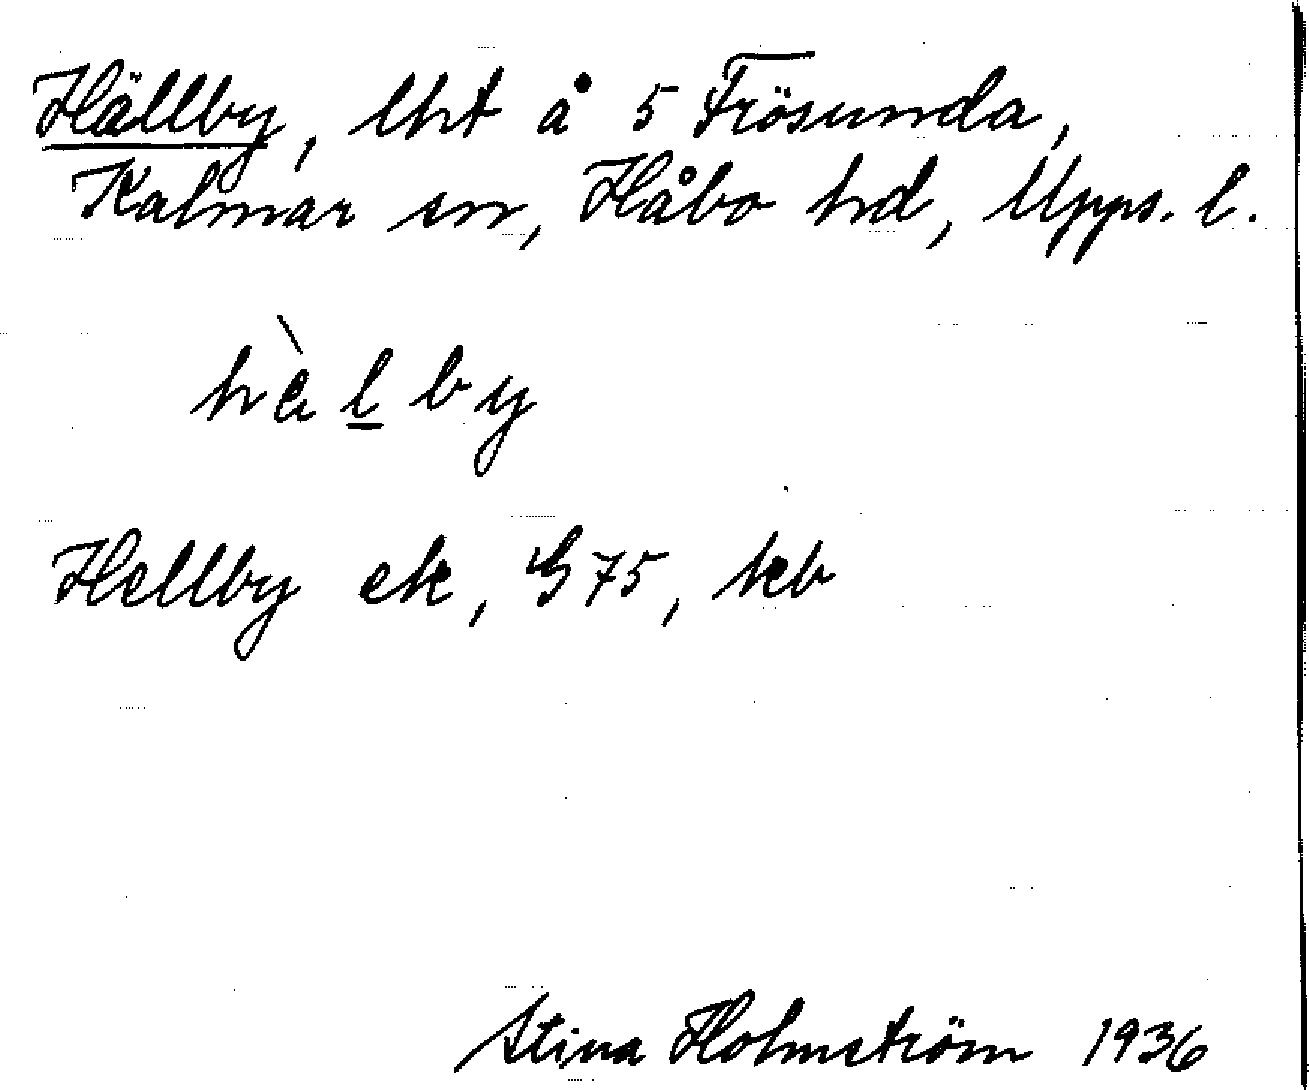 Hällby, lht å 5 Frösunda,
Kalmar sn, Håbo hd, Upps. l.
hὲl̲by
Hellby ek, G75, kb
Stina Holmström 1936